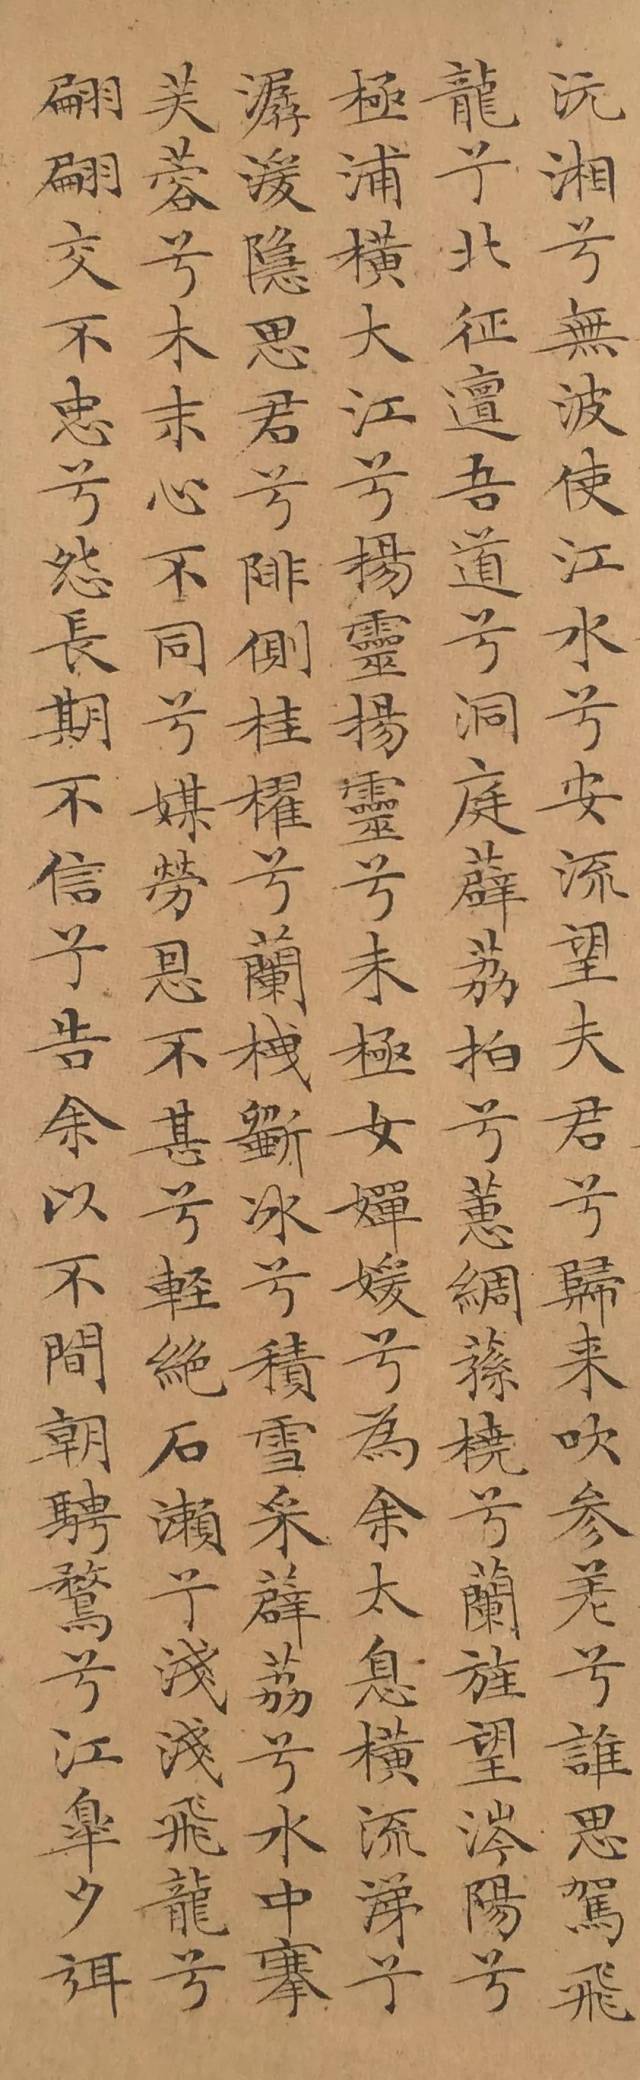 沅湘兮無波使江水兮安流望夫君兮歸来吹参差兮誰思駕飛
龍兮北征邅吾道兮洞庭薜荔拍兮蕙綢蓀橈兮蘭旌望涔陽兮
極浦橫大江兮揚靈揚靈兮未極女嬋媛兮為余太息橫流涕兮
潺湲隱思君兮陫側桂櫂兮蘭枻斲冰兮積雪采薜荔兮水中搴
芙蓉兮木末心不同兮媒勞恩不甚兮輕絕石瀨兮淺淺飛龍兮
翩翩交不忠兮怨長期不信兮告余以不間朝騁騖兮江皋夕弭